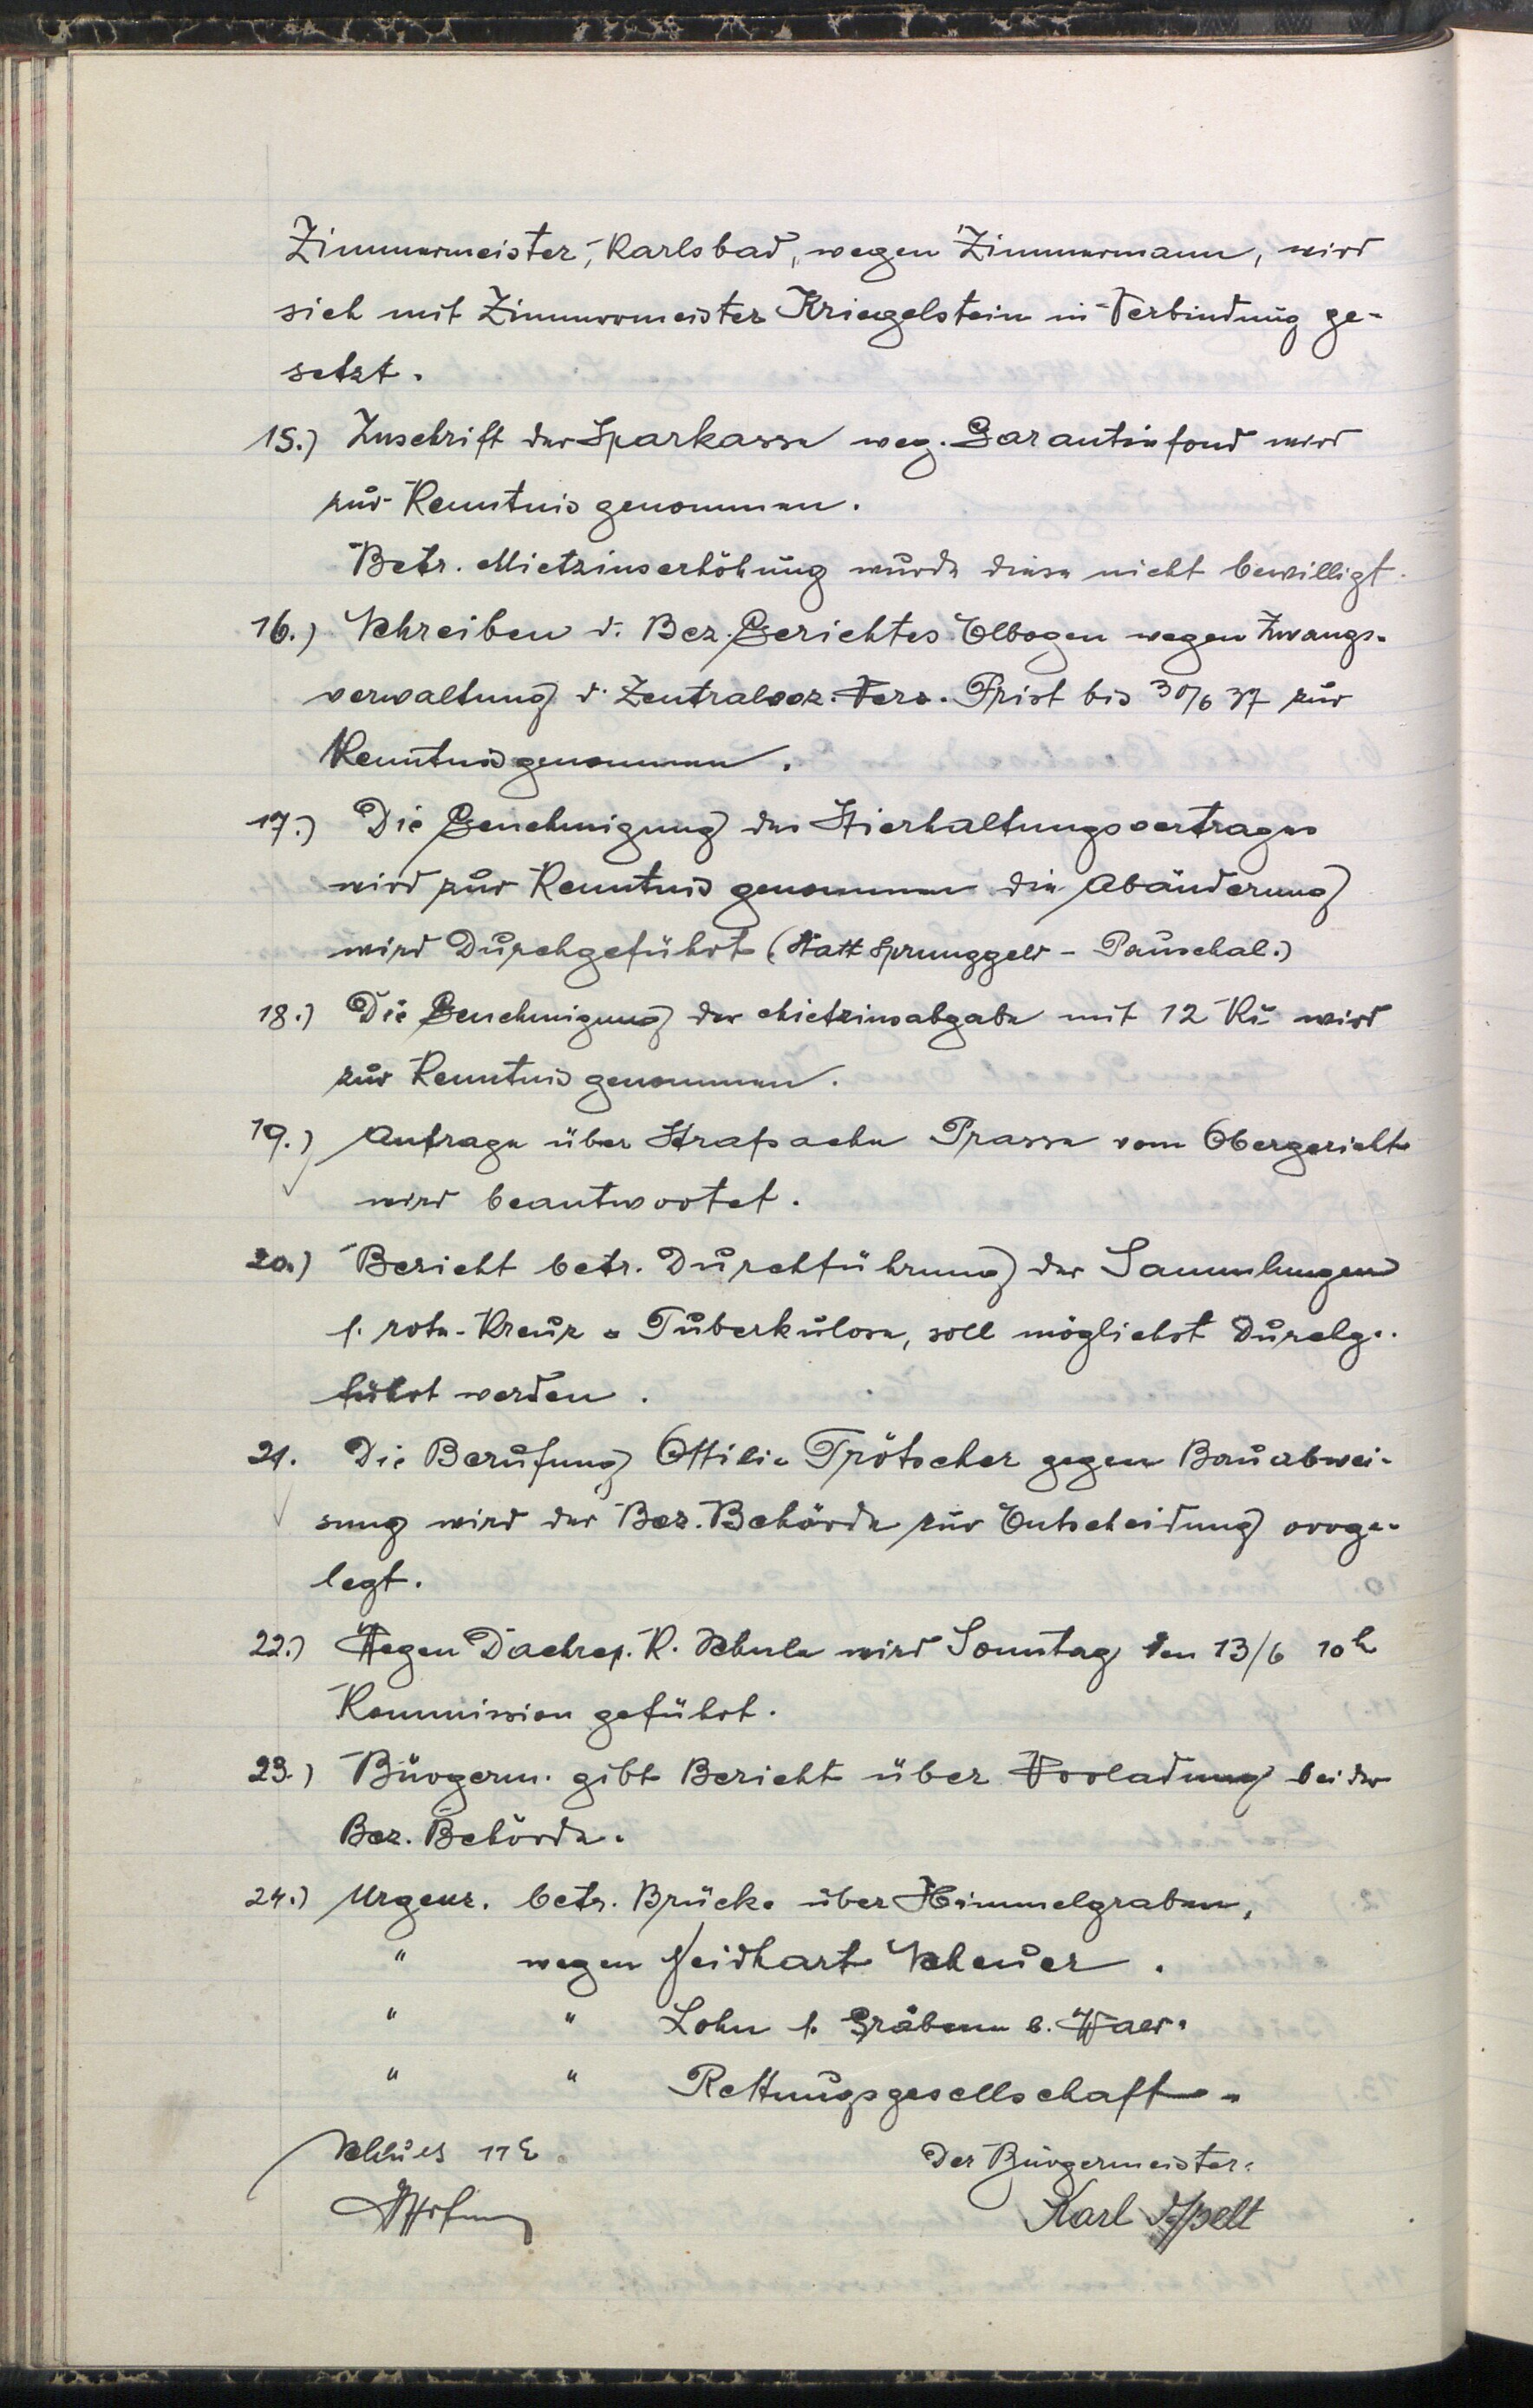 Zimmermeister, Karlsbad, wegen Zimmermann, wird
sich mit Zimmermeister Kriegelstein in Verbindung ge-
setzt.
15.) Zuschrift der Sparkasse weg. Garantiefond wird
zur Kenntnis genommen.
Betr. Mietzinserhöhung wurde diese nicht bewilligt.
16.) Schreiben d. Bez. Gerichtes Elbogen wegen Zwangs-
verwaltung d. Zentralsoz. Vers. Frist bis 30/6 37 zur
Kenntnis genommen.
17.) Die Genehmigung des Stierhaltungsvertrages
wird zur Kenntnis genommen die Abänderung
wird Durchgeführt (Statt Sprunggeld - Pauschal.)
18.) Die Genehmigung der Mietzinsabgabe mit 12 Kč wird
zur Kenntnis genommen.
19.) Anfrage über Strafsache Prasse vom Obergericht
wird beantwortet.
20.) Bericht betr. Durchführung der Sammlungen
f. rote-Kreuz Tuberkulose, soll möglichst Durchge-
führt werden.
21. Die Berufung Ottilie Trötscher gegen Bauabwei-
sung wird der Bez. Behörde zur Entscheidung vorge-
legt.
22.) Wegen Dachrep. K. Schule wird Sonntag den 13/6 10h
Kommission geführt.
23.) Bürgerm. gibt Bericht über Vorladung bei der
Bez. Behörde.
24.) Urgenz. betr. Brücke über Himmelgraben,
" wegen Neidhart Scheuer.
" " Lohn f. Gräben b.
" " Rettungsgesellschaft.
Schluss 11h
Der Bürgermeister:
Karl